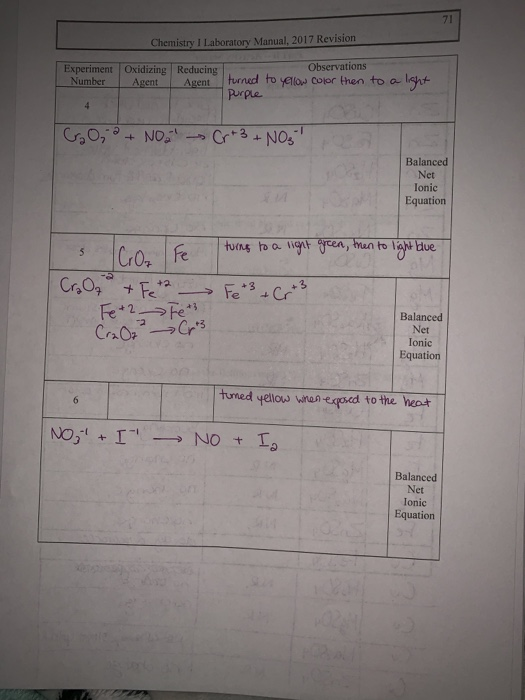 71
Chemistry I Laboratory Manual, 2017 Revision
Experiment Number
Oxidizing Agent
Reducing Agent
Observations
turned to yellow color then to a light
purple
4
Cr₂O₇⁻² + NO₂⁻¹ → Cr⁺³ + NO₃⁻¹
Balanced
Net
Ionic
Equation
5
CrO₇
Fe
turns to a light green, then to light blue
Cr₂O₇⁻² + Fe⁺² → Fe⁺³ + Cr⁺³
Fe⁺² → Fe⁺³
Cr₂O₇⁻² → Cr⁺³
Balanced
Net
Ionic
Equation
6
turned yellow when exposed to the heat
NO₃⁻¹ + I⁻¹ → NO + I₂
Balanced
Net
Ionic
Equation